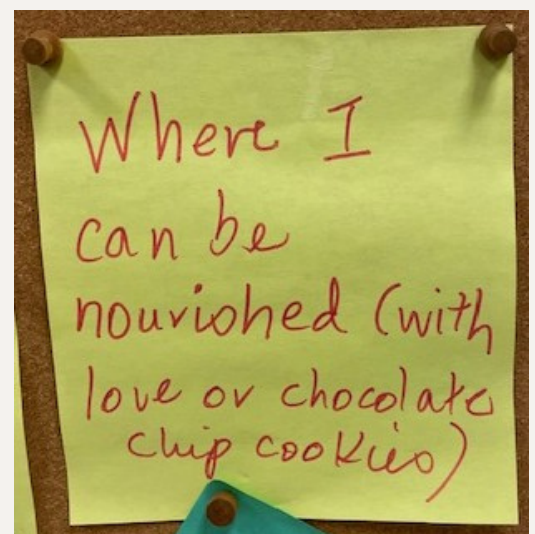 Where I
can be
nourished (with
love or chocolate
chip cookies)